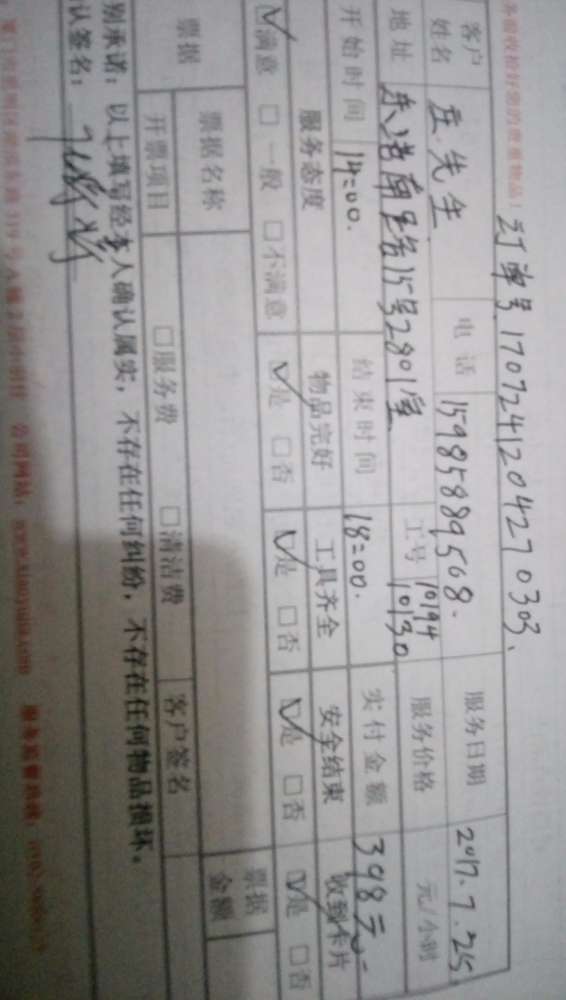 订单号 170724120427 0303.
客户姓名 庄先生 电话 15985889568. 服务日期 2017.7.25.
地址 15号2801室 工号 10194 10130 服务价格 元/小时
开始时间 14:00. 结束时间 18:00. 实付金额 398元
服务态度 物品完好 工具齐全 安全结束 收到卡片
☑满意 □一般 □不满意 ☑是 □否 ☑是 □否 ☑是 □否 ☑是 □否
票据 票据名称 票据金额
开票项目 □服务费 □清洁费 客户签名
别承诺：以上填写经本人确认属实，不存在任何纠纷，不存在任何物品损坏。
认签名：